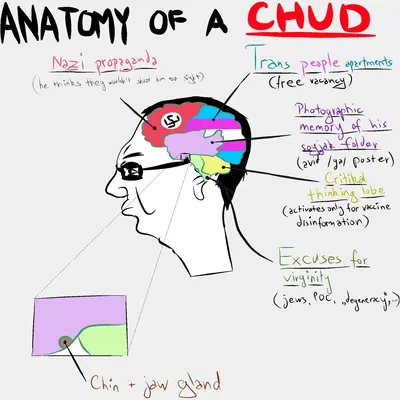 ANATOMY OF A CHUD
Nazi propaganda
(he thinks they wouldn't shoot him on sight)
Trans people apartments
(free vacancy)
Photographic
memory of his
soyjak folder
(avid /qa/ poster)
Critical
thinking lobe
(activates only for vaccine
disinformation)
Excuses for
virginity
(jews, POC, „degeneracy",...)
Chin + jaw gland